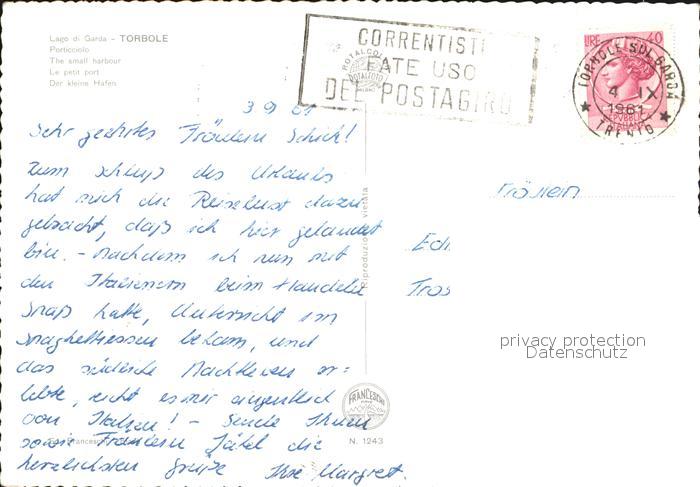 Lago di Garda - TORBOLE
Porticciolo
The small harbour
Le petit port
Der kleine Hafen
CORRENTISTI
FATE USO
DEL POSTAGIRO
ROTALCOLOR
ROTALFOTO
LIRE 40
REPVBBLICA
ITALIANA
TORBOLE SUL GARDA
4 IX
1961
TRENTO
3 9 61
Sehr geehrtes Fräulein Schick!
Zum Schluß des Urlaubs
hat mich die Reiselust dazu
gebracht, daß ich hier gelandet
bin. - Nachdem ich nun mit
den Italienern beim Handeln
Spaß hatte, Unterricht im
Spaghettiessen bekam, und
das südliche Nachtleben er-
lebte, reicht es mir eigentlich
von Italien! - Sende Ihnen
sowie Fräulein die
herzlichsten Grüße Ihre Margret.
Fräulein
Riproduzione vietata
privacy protection
Datenschutz
N. 1243